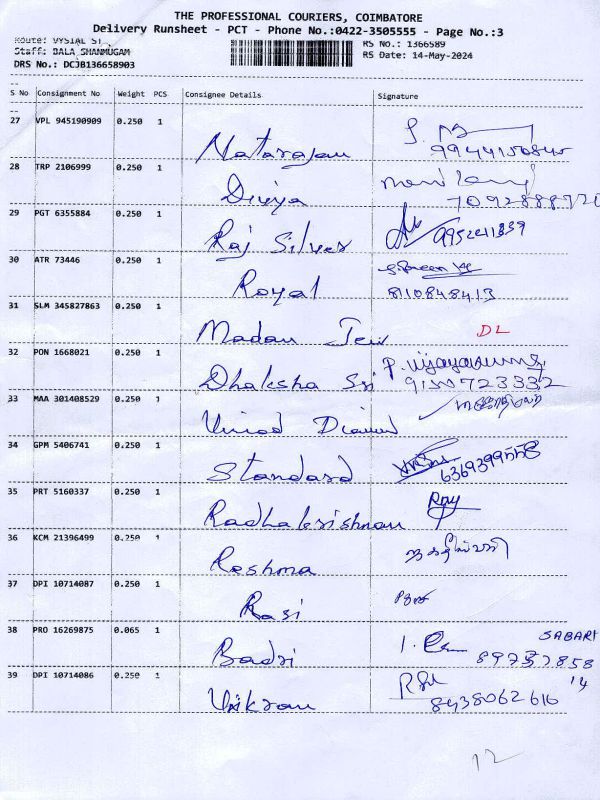 THE PROFESSIONAL COURIERS, COIMBATORE
Delivery Runsheet - PCT - Phone No.:0422-3505555 - Page No.:3
Route: VYSIAL ST
RS No.: 1366589
Staff: BALA SHANMUGAM
RS Date: 14-May-2024
DRS No.: DCJB136658903
S No Consignment No Weight PCS Consignee Details Signature
27 VPL 945190909 0.250 1 Natarajan
28 TRP 2106999 0.250 1 Divya
29 PGT 6355884 0.250 1 Raj Silver
30 ATR 73446 0.250 1 Royal
8110848413
31 SLM 345827863 0.250 1 Madan Jew DL
32 PON 1668021 0.250 1 Dhaksha Sri
33 MAA 301408529 0.250 1 Vinod
34 GPM 5406741 0.250 1 Standard
6369399558
35 PRT 5160337 0.250 1 Radhakrishnan
36 KCM 21396499 0.250 1 Reshma
37 DPI 10714087 0.250 1 Rasi
38 PRO 16269875 0.065 1 Badri SABARI
39 DPI 10714086 0.250 1 Vikram
8438062616
12